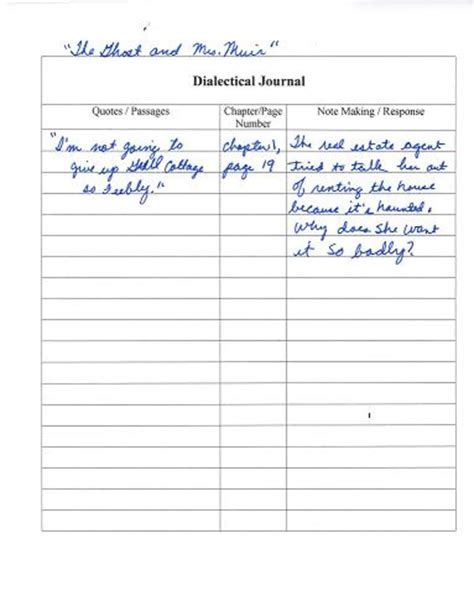 "The Ghost and Mrs. Muir"
Dialectical Journal
Quotes / Passages
Chapter/Page
Number
Note Making / Response
"I'm not going to
give up Gull Cottage
so feebly."
chapter 1,
page 19
The real estate agent
tried to talk her out
of renting the house
because it's haunted.
Why does she want
it so badly?